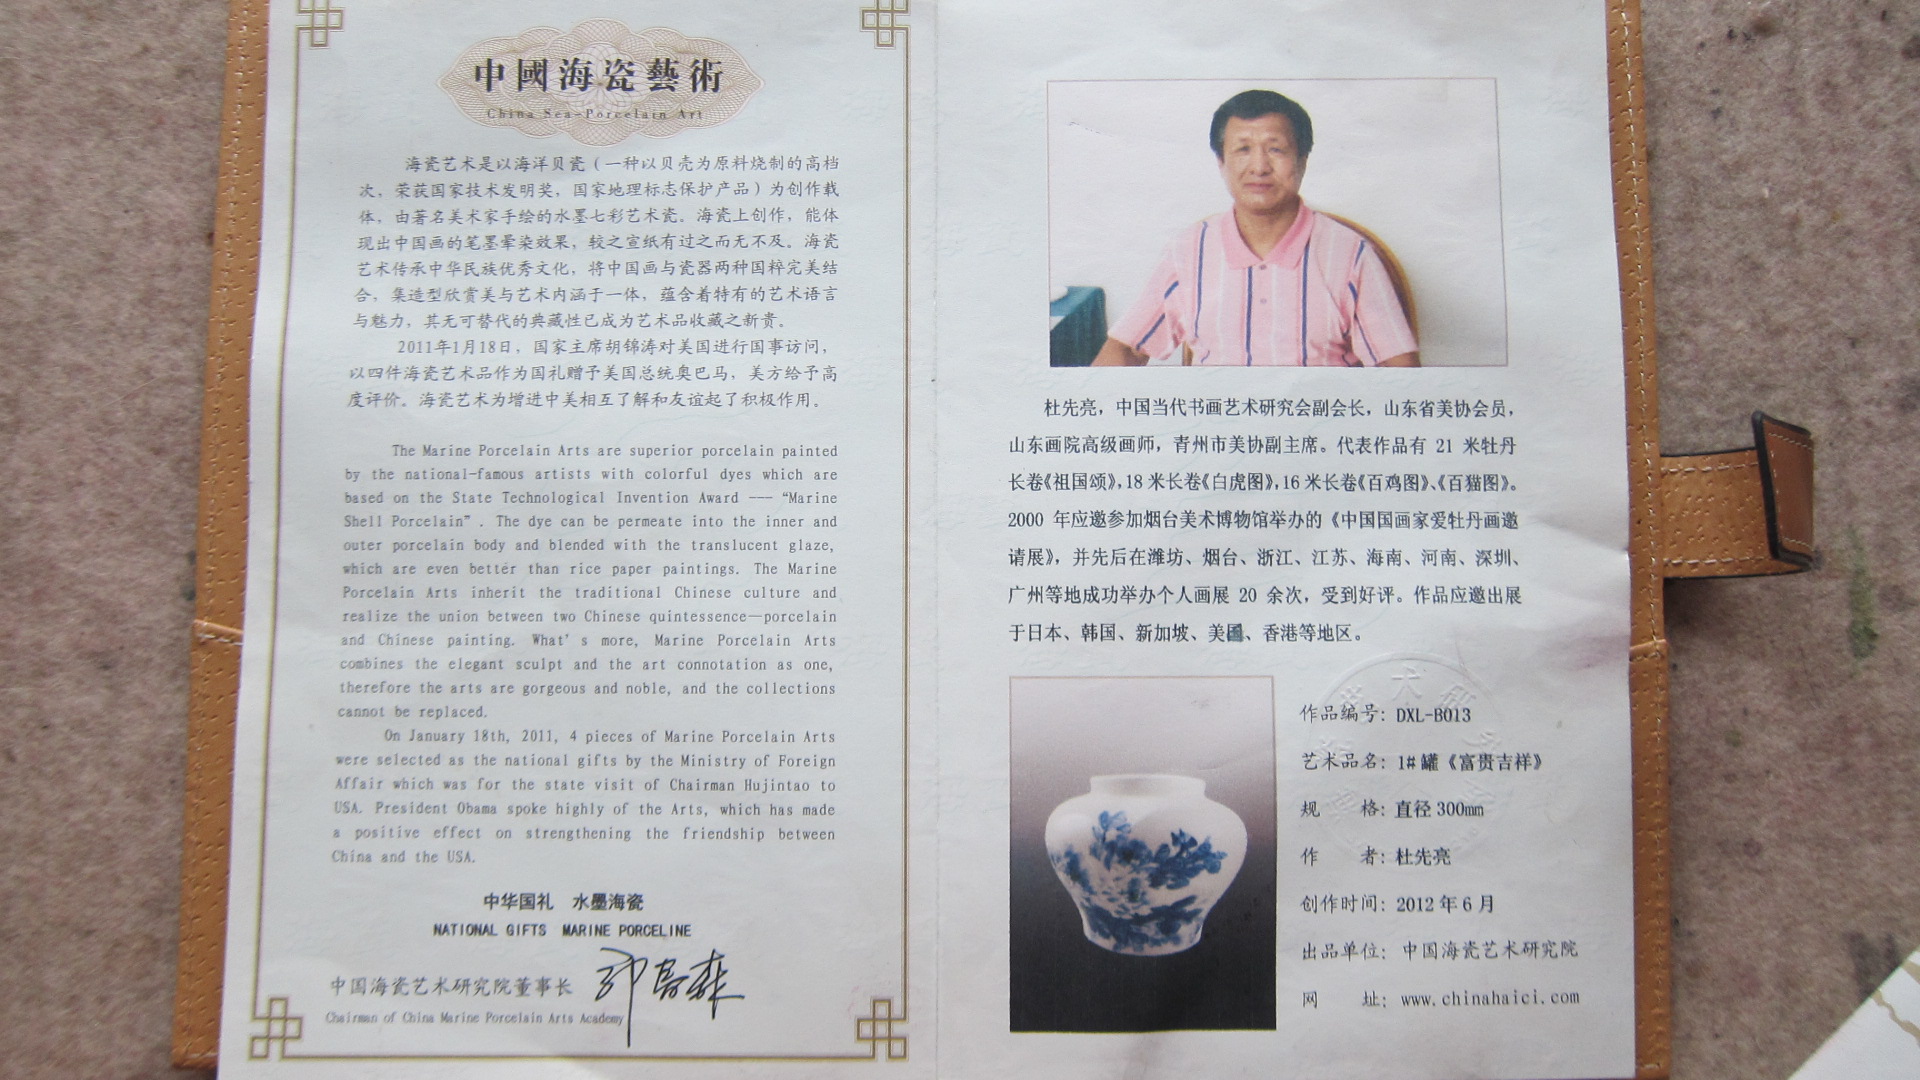 中國海瓷藝術
China Sea-Porcelain Art
海瓷艺术是以海洋贝瓷（一种以贝壳为原料烧制的高档
次，荣获国家技术发明奖，国家地理标志保护产品）为创作载
体，由著名美术家手绘的水墨七彩艺术瓷。海瓷上创作，能体
现出中国画的笔墨晕染效果，较之宣纸有过之而无不及。海瓷
艺术传承中华民族优秀文化，将中国画与瓷器两种国粹完美结
合，集造型欣赏美与艺术内涵于一体，蕴含着特有的艺术语言
与魅力，其无可替代的典藏性已成为艺术品收藏之新贵。
2011年1月18日，国家主席胡锦涛对美国进行国事访问，
以四件海瓷艺术品作为国礼赠予美国总统奥巴马，美方给予高
度评价。海瓷艺术为增进中美相互了解和友谊起了积极作用。
The Marine Porcelain Arts are superior porcelain painted
by the national-famous artists with colorful dyes which are
based on the State Technological Invention Award —— “Marine
Shell Porcelain” . The dye can be permeate into the inner and
outer porcelain body and blended with the translucent glaze,
which are even better than rice paper paintings. The Marine
Porcelain Arts inherit the traditional Chinese culture and
realize the union between two Chinese quintessence—porcelain
and Chinese painting. What’s more, Marine Porcelain Arts
combines the elegant sculpt and the art connotation as one,
therefore the arts are gorgeous and noble, and the collections
cannot be replaced.
On January 18th, 2011, 4 pieces of Marine Porcelain Arts
were selected as the national gifts by the Ministry of Foreign
Affair which was for the state visit of Chairman Hujintao to
USA. President Obama spoke highly of the Arts, which has made
a positive effect on strengthening the friendship between
China and the USA.
中华国礼 水墨海瓷
NATIONAL GIFTS MARINE PORCELINE
中国海瓷艺术研究院董事长
Chairman of China Marine Porcelain Arts Academy
杜先亮，中国当代书画艺术研究会副会长，山东省美协会员，
山东画院高级画师，青州市美协副主席。代表作品有 21 米牡丹
长卷《祖国颂》，18 米长卷《白虎图》，16 米长卷《百鸡图》、《百猫图》。
2000 年应邀参加烟台美术博物馆举办的《中国国画家爱牡丹画邀
请展》，并先后在潍坊、烟台、浙江、江苏、海南、河南、深圳、
广州等地成功举办个人画展 20 余次，受到好评。作品应邀出展
于日本、韩国、新加坡、美国、香港等地区。
作品编号：DXL-B013
艺术品名：1#罐《富贵吉祥》
规 格：直径300mm
作 者：杜先亮
创作时间：2012年6月
出品单位：中国海瓷艺术研究院
网 址：www.chinahaici.com